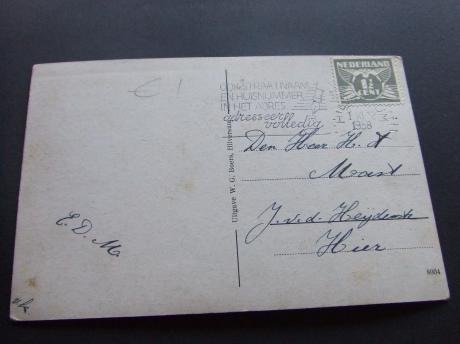 € 1
OOK STRAATNAAM
EN HUISNUMMER
IN HET ADRES
adresseer
volledig
NEDERLAND
1½
CENT
1938
Den Heer H.
J. v. d.
Hier
E. D. M.
Uitgave W. G. Boers, Hilversum
8004